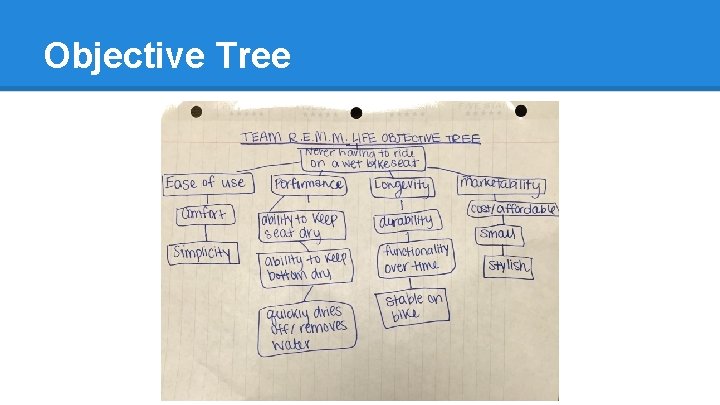 Objective Tree
TEAM R.E.M.M. LIFE OBJECTIVE TREE
Never having to ride
on a wet bike seat
Ease of use
Performance
Longevity
Marketability
Comfort
ability to keep
seat dry
durability
cost/affordable
Simplicity
ability to keep
bottom dry
functionality
over time
small
stylish
quickly dries
off/removes
water
stable on
bike